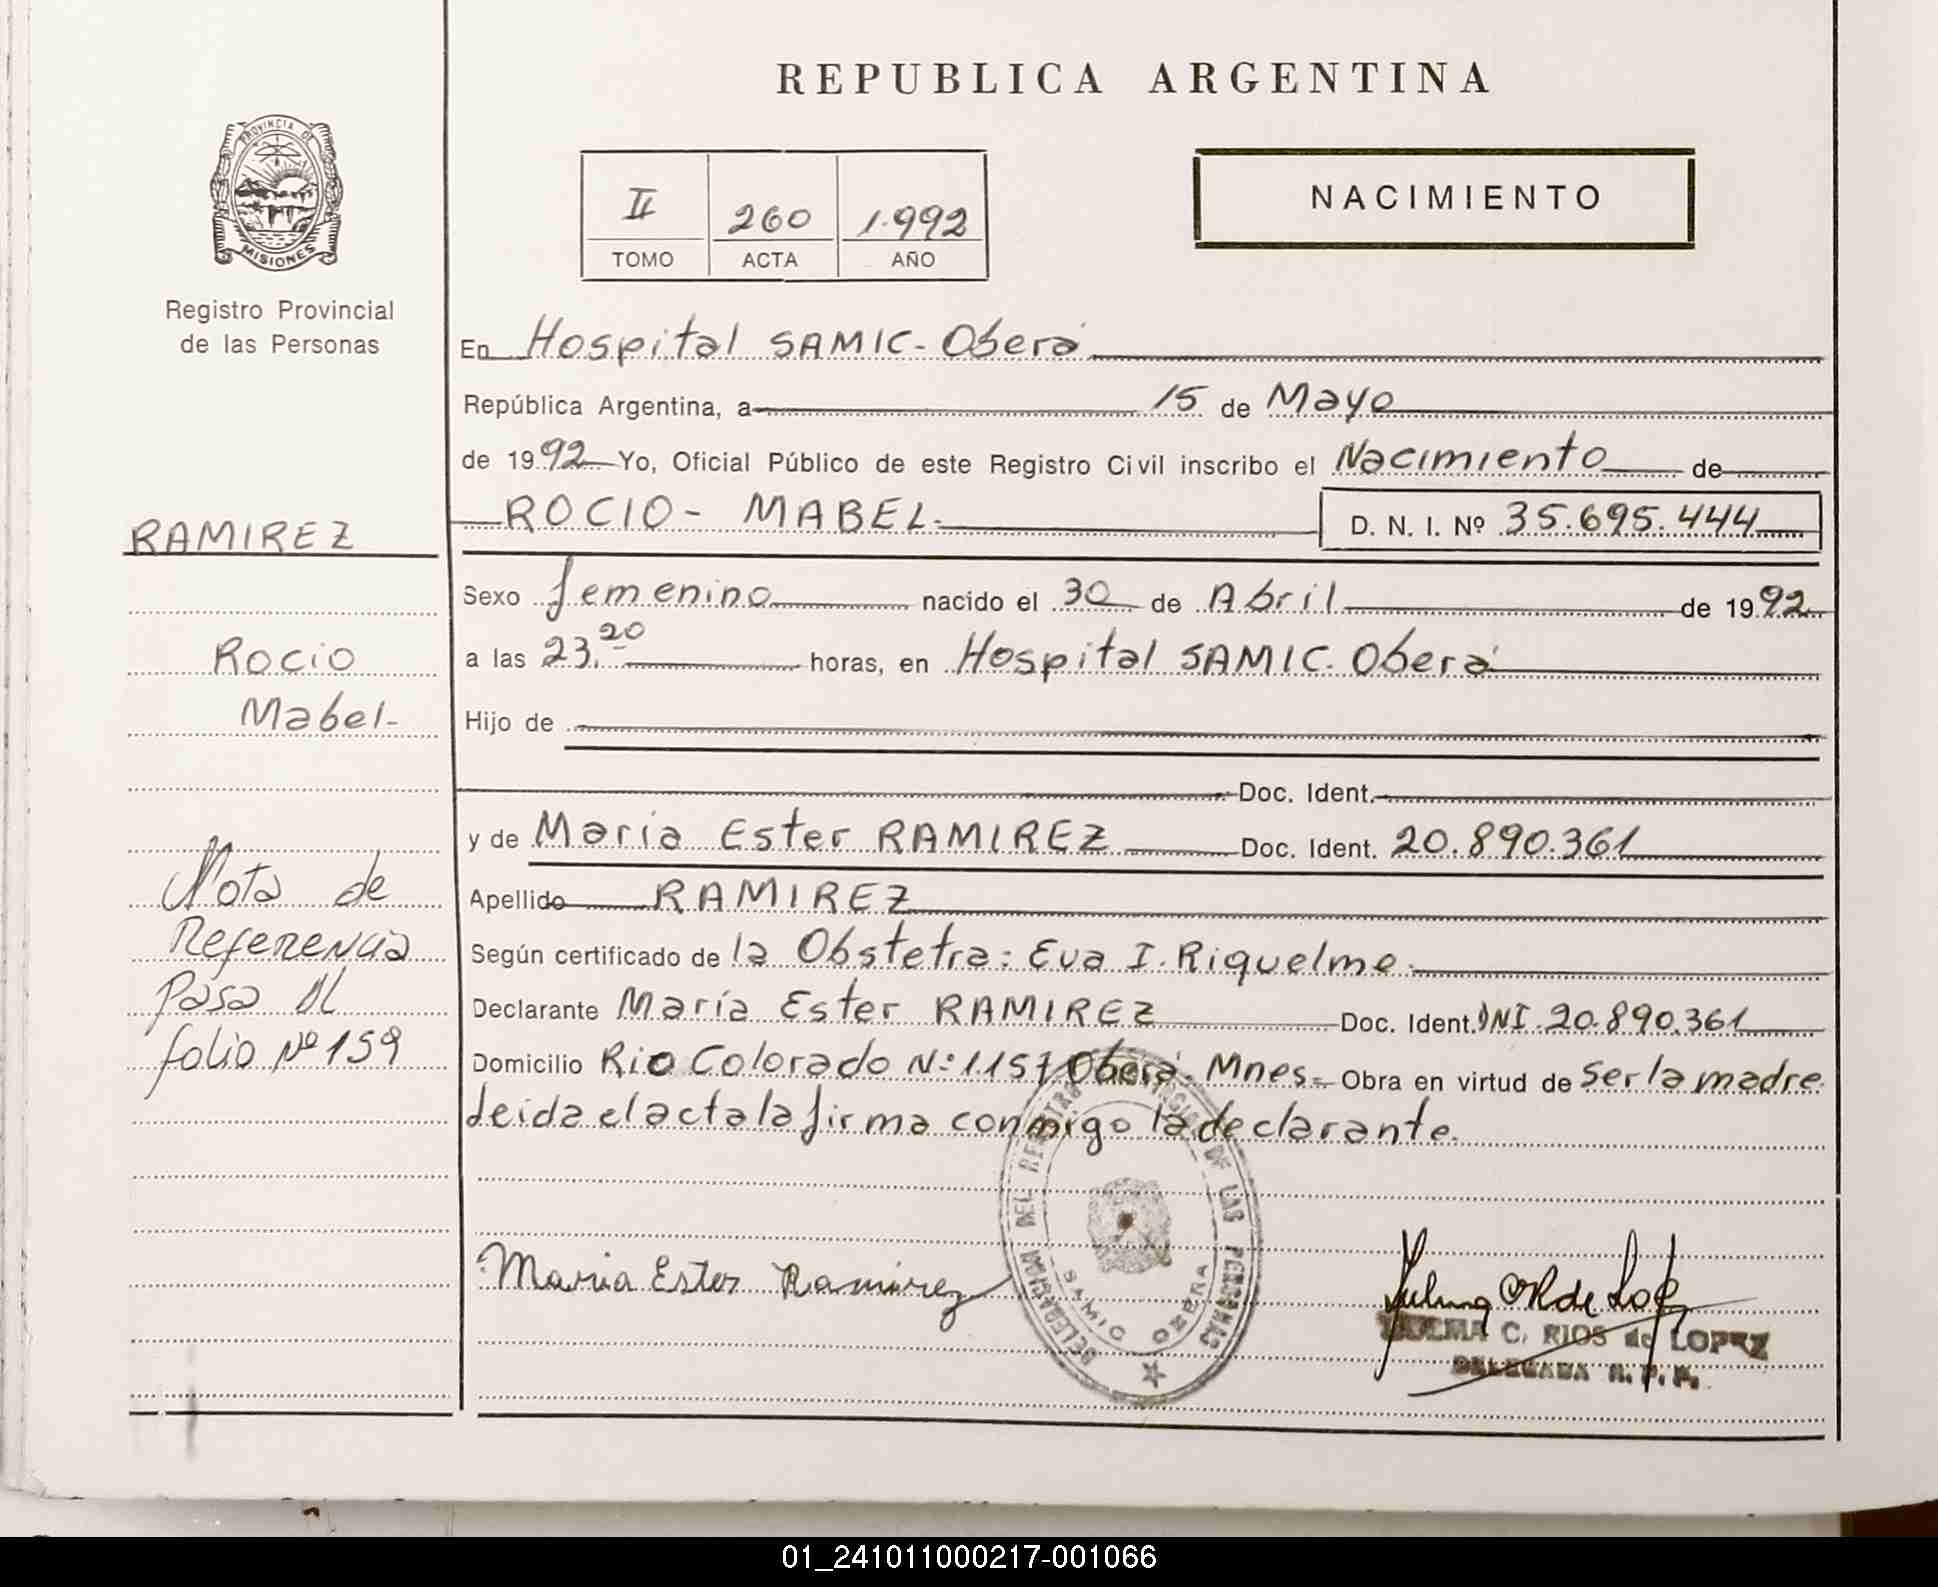 REPUBLICA ARGENTINA
PROVINCIA DE
MISIONES
Registro Provincial
de las Personas
II 260 1.992
TOMO ACTA AÑO
NACIMIENTO
En Hospital SAMIC - Oberá
República Argentina, a 15 de Mayo
de 1992 Yo, Oficial Público de este Registro Civil inscribo el Nacimiento de
ROCIO - MABEL - D. N. I. Nº 35.695.444
RAMIREZ
Sexo femenino nacido el 30 de Abril de 1992
Rocio
a las 23.20 horas, en Hospital SAMIC. Oberá
Mabel-
Hijo de
Doc. Ident.
y de María Ester RAMIREZ Doc. Ident. 20.890.361
Apellido RAMIREZ
Según certificado de la Obstetra: Eva I. Riquelme.
Declarante María Ester RAMIREZ Doc. Ident. DNI. 20.890.361
Domicilio Rio Colorado Nº 1157 Oberá. Mnes.- Obra en virtud de ser la madre
leida el acta la firma conmigo la declarante.
Nota de
Referencia
Pasa al
folio Nº 159
Maria Ester Ramirez
DELEGACION DEL REGISTRO PROVINCIAL DE LAS PERSONAS
SAMIC OBERA
C. RIOS de LOPEZ
DELEGADA R. P. P.
01_241011000217-001066